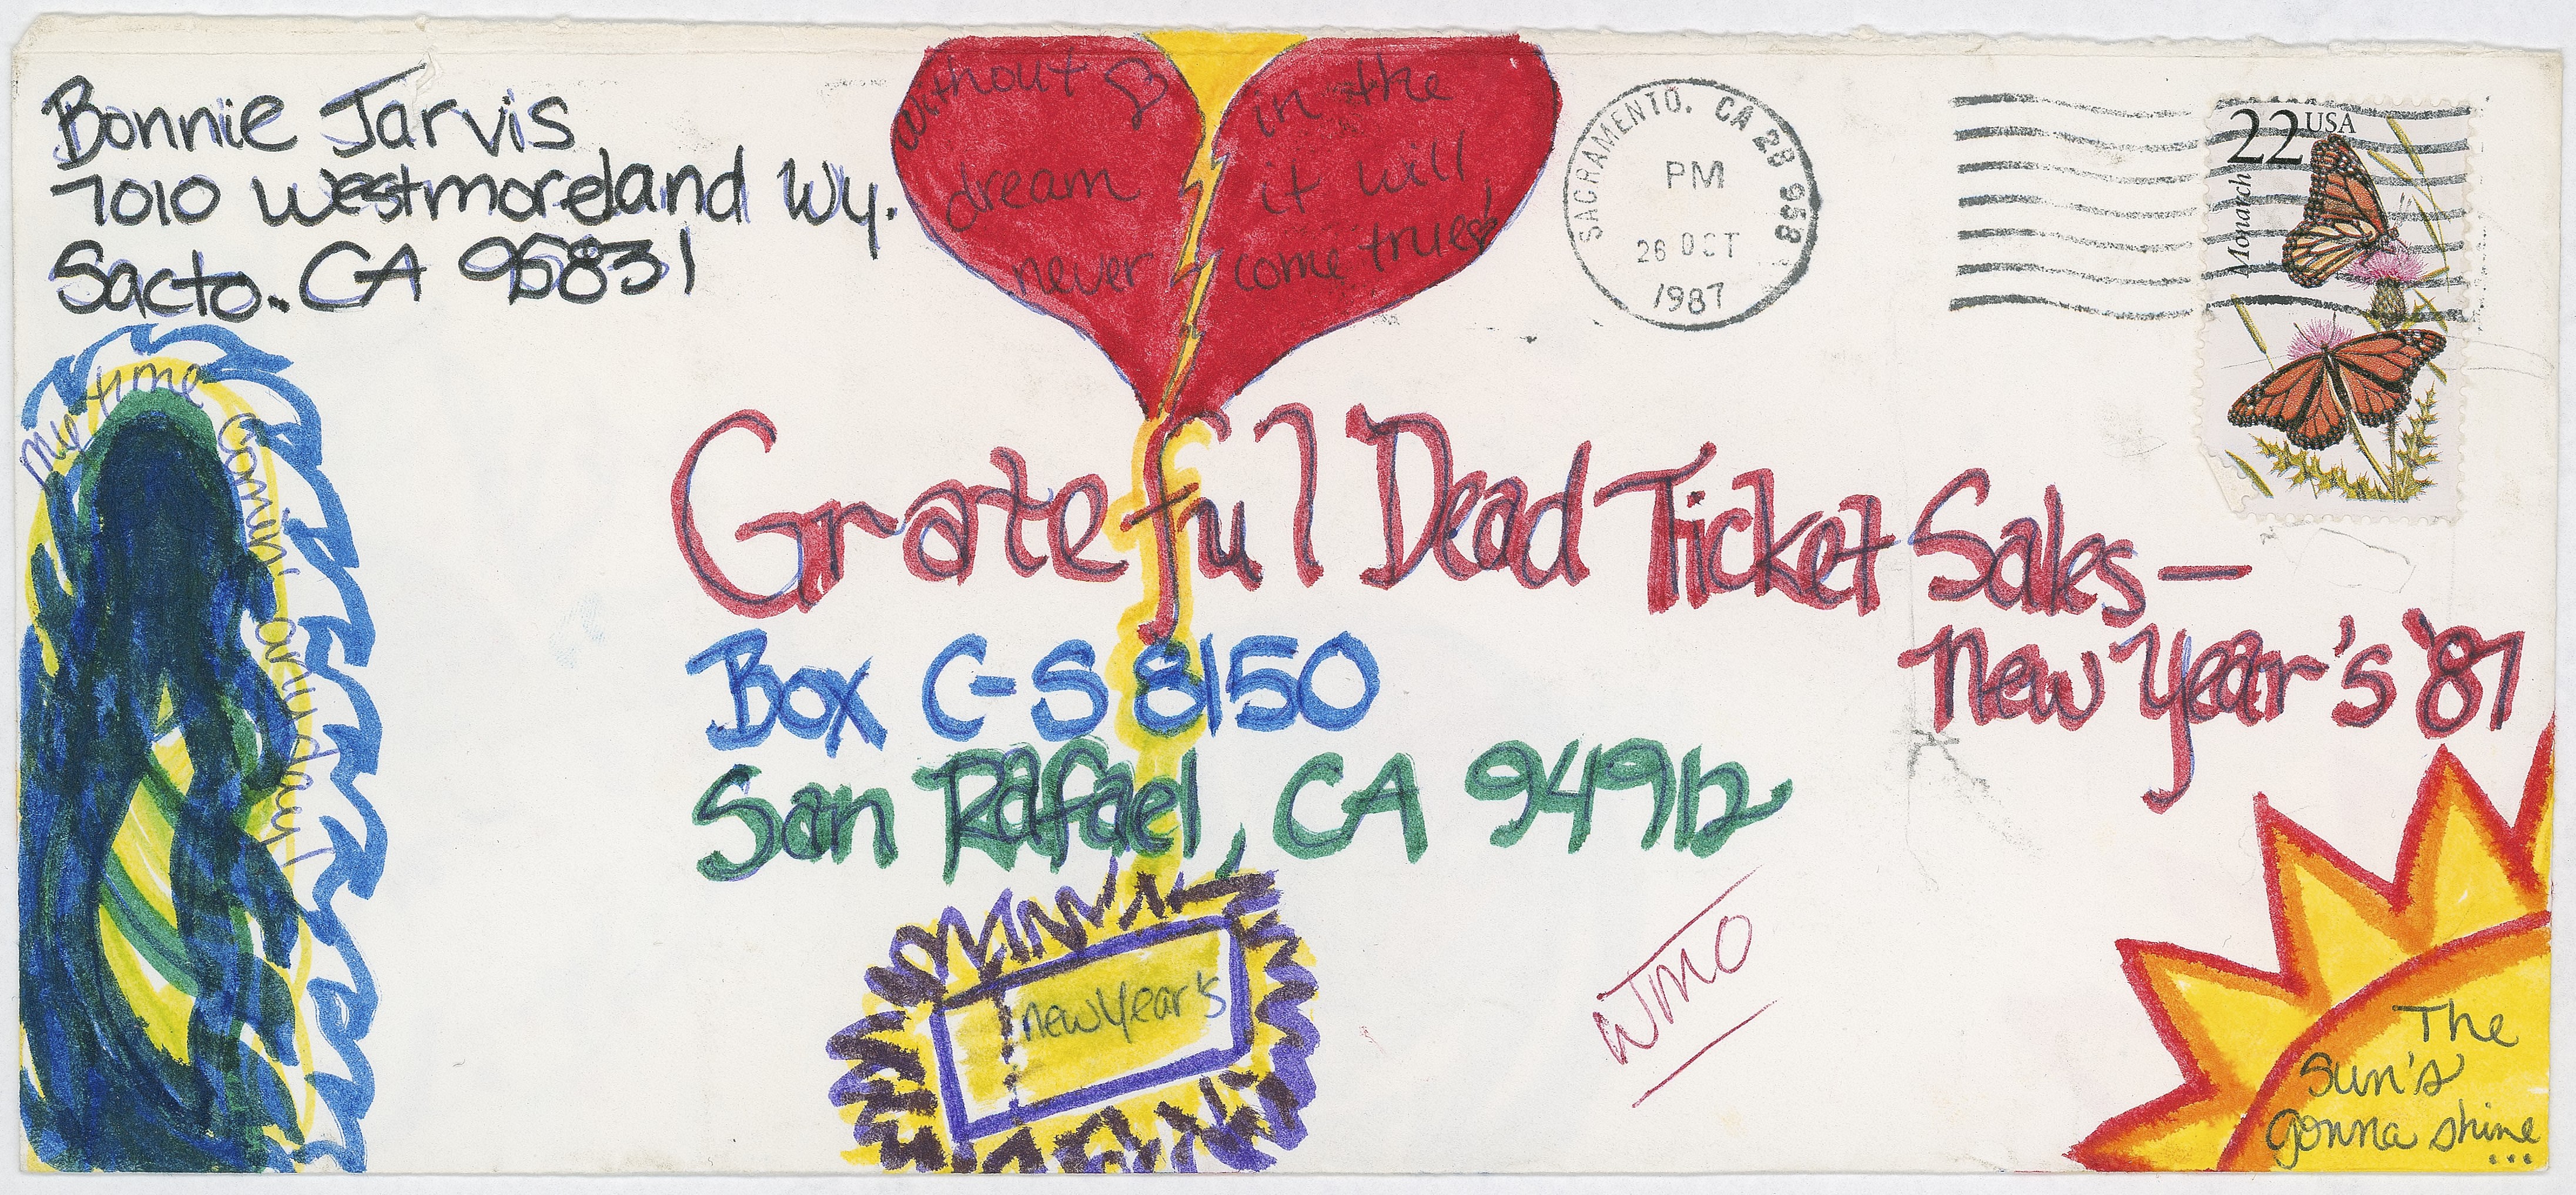 Bonnie Jarvis
7010 Westmoreland Wy.
Sacto. CA 95831
Without in the
dream it will
never come true
SACRAMENTO. CA 2B 958
PM
26 OCT
1987
22 USA
Monarch
my time comin' any day
Grateful Dead Ticket Sales—
New Year's '87
Box C-S 8150
San Rafael, CA 94912
new Year's
WJMO
The
Sun's
gonna shine
...